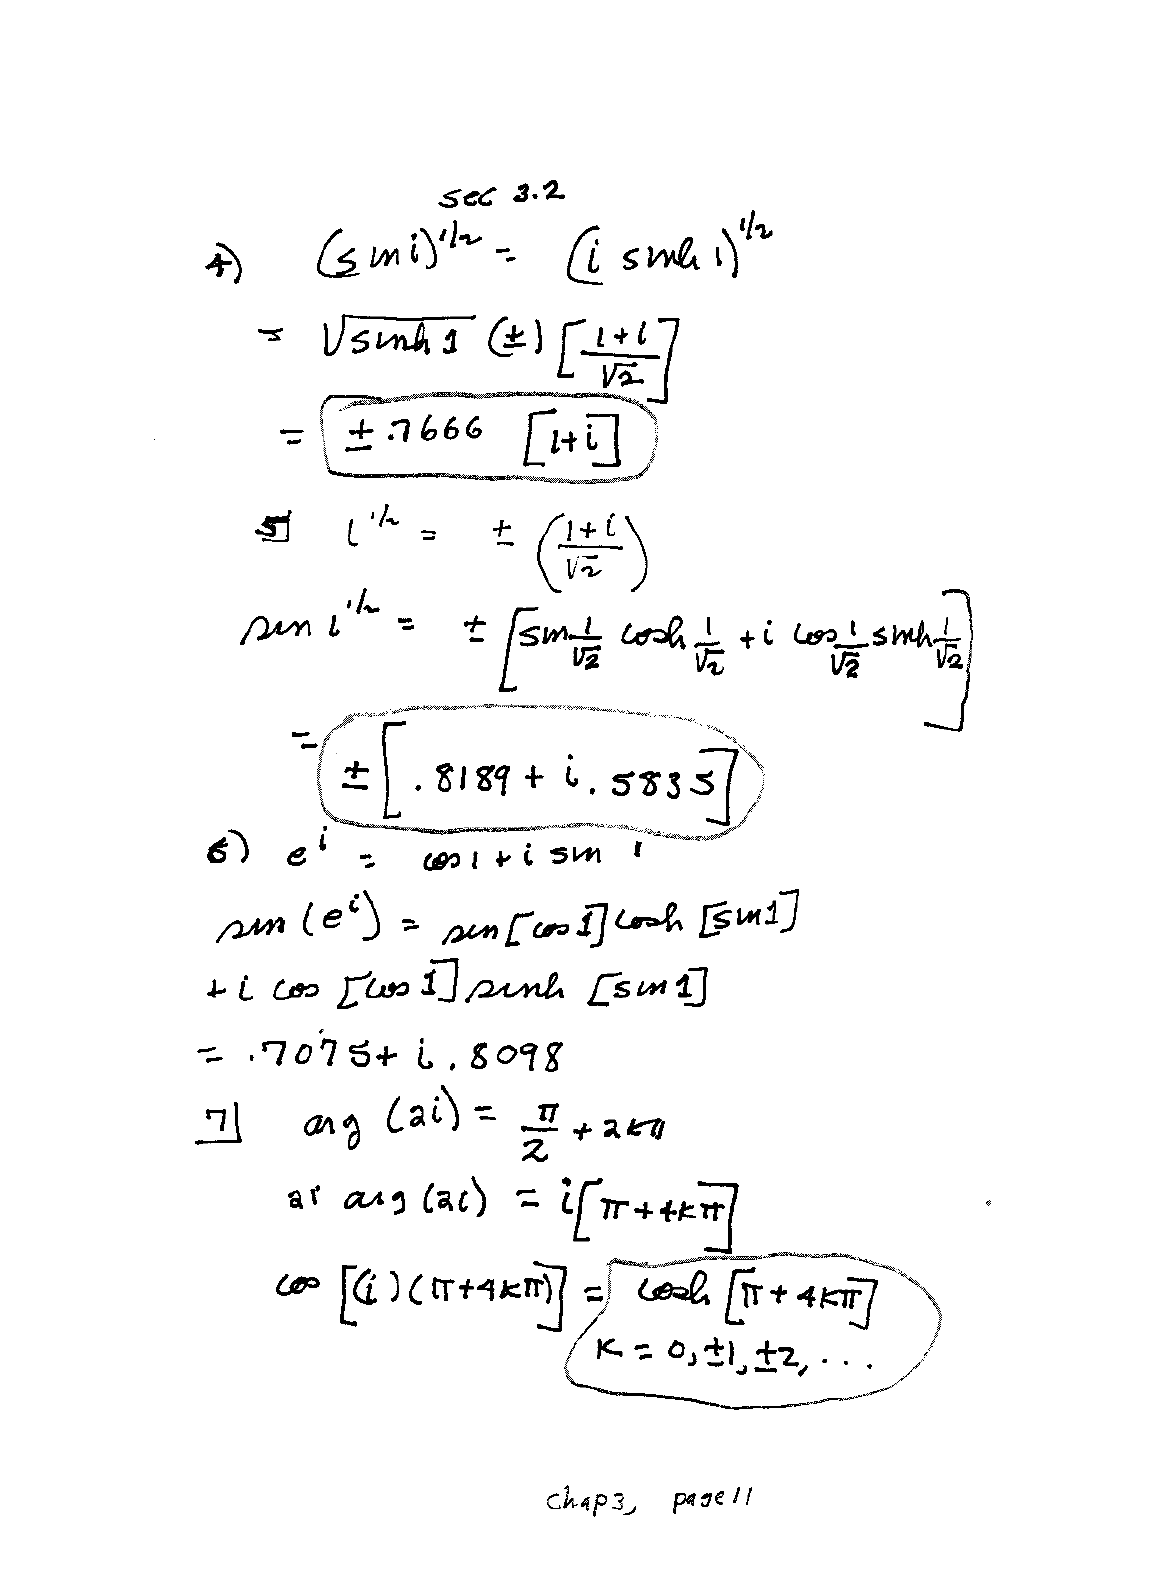 sec 3.2
4) (sin i)^{1/2} = (i sinh 1)^{1/2}
= √sinh 1 (±) [(1+i)/√2]
= ± .7666 [1+i]
5] i^{1/2} = ± ((1+i)/√2)
sin i^{1/2} = ± [sin 1/√2 cosh 1/√2 + i cos 1/√2 sinh 1/√2]
= ± [.8189 + i .5835]
6) e^i = cos 1 + i sin 1
sin (e^i) = sin [cos 1] cosh [sin 1]
+ i cos [cos 1] sinh [sin 1]
= .7075 + i .8098
7] arg (2i) = π/2 + 2kπ
2i arg (2i) = i[π + 4kπ]
cos [(i)(π+4kπ)] = cosh [π + 4kπ]
k = 0, ±1, ±2, ...
chap3, page 11